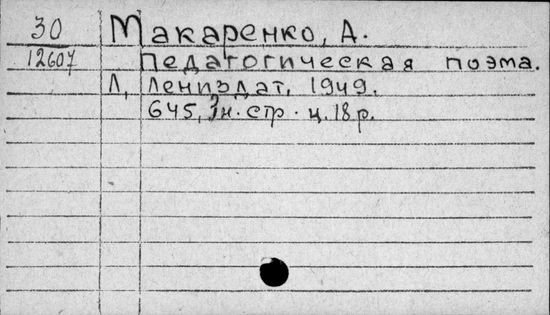 30 Макаренко, А.
12607 Педагогическая поэма.
Л, Лениздат, 1949.
645, 3н. стр. ц. 18 р.